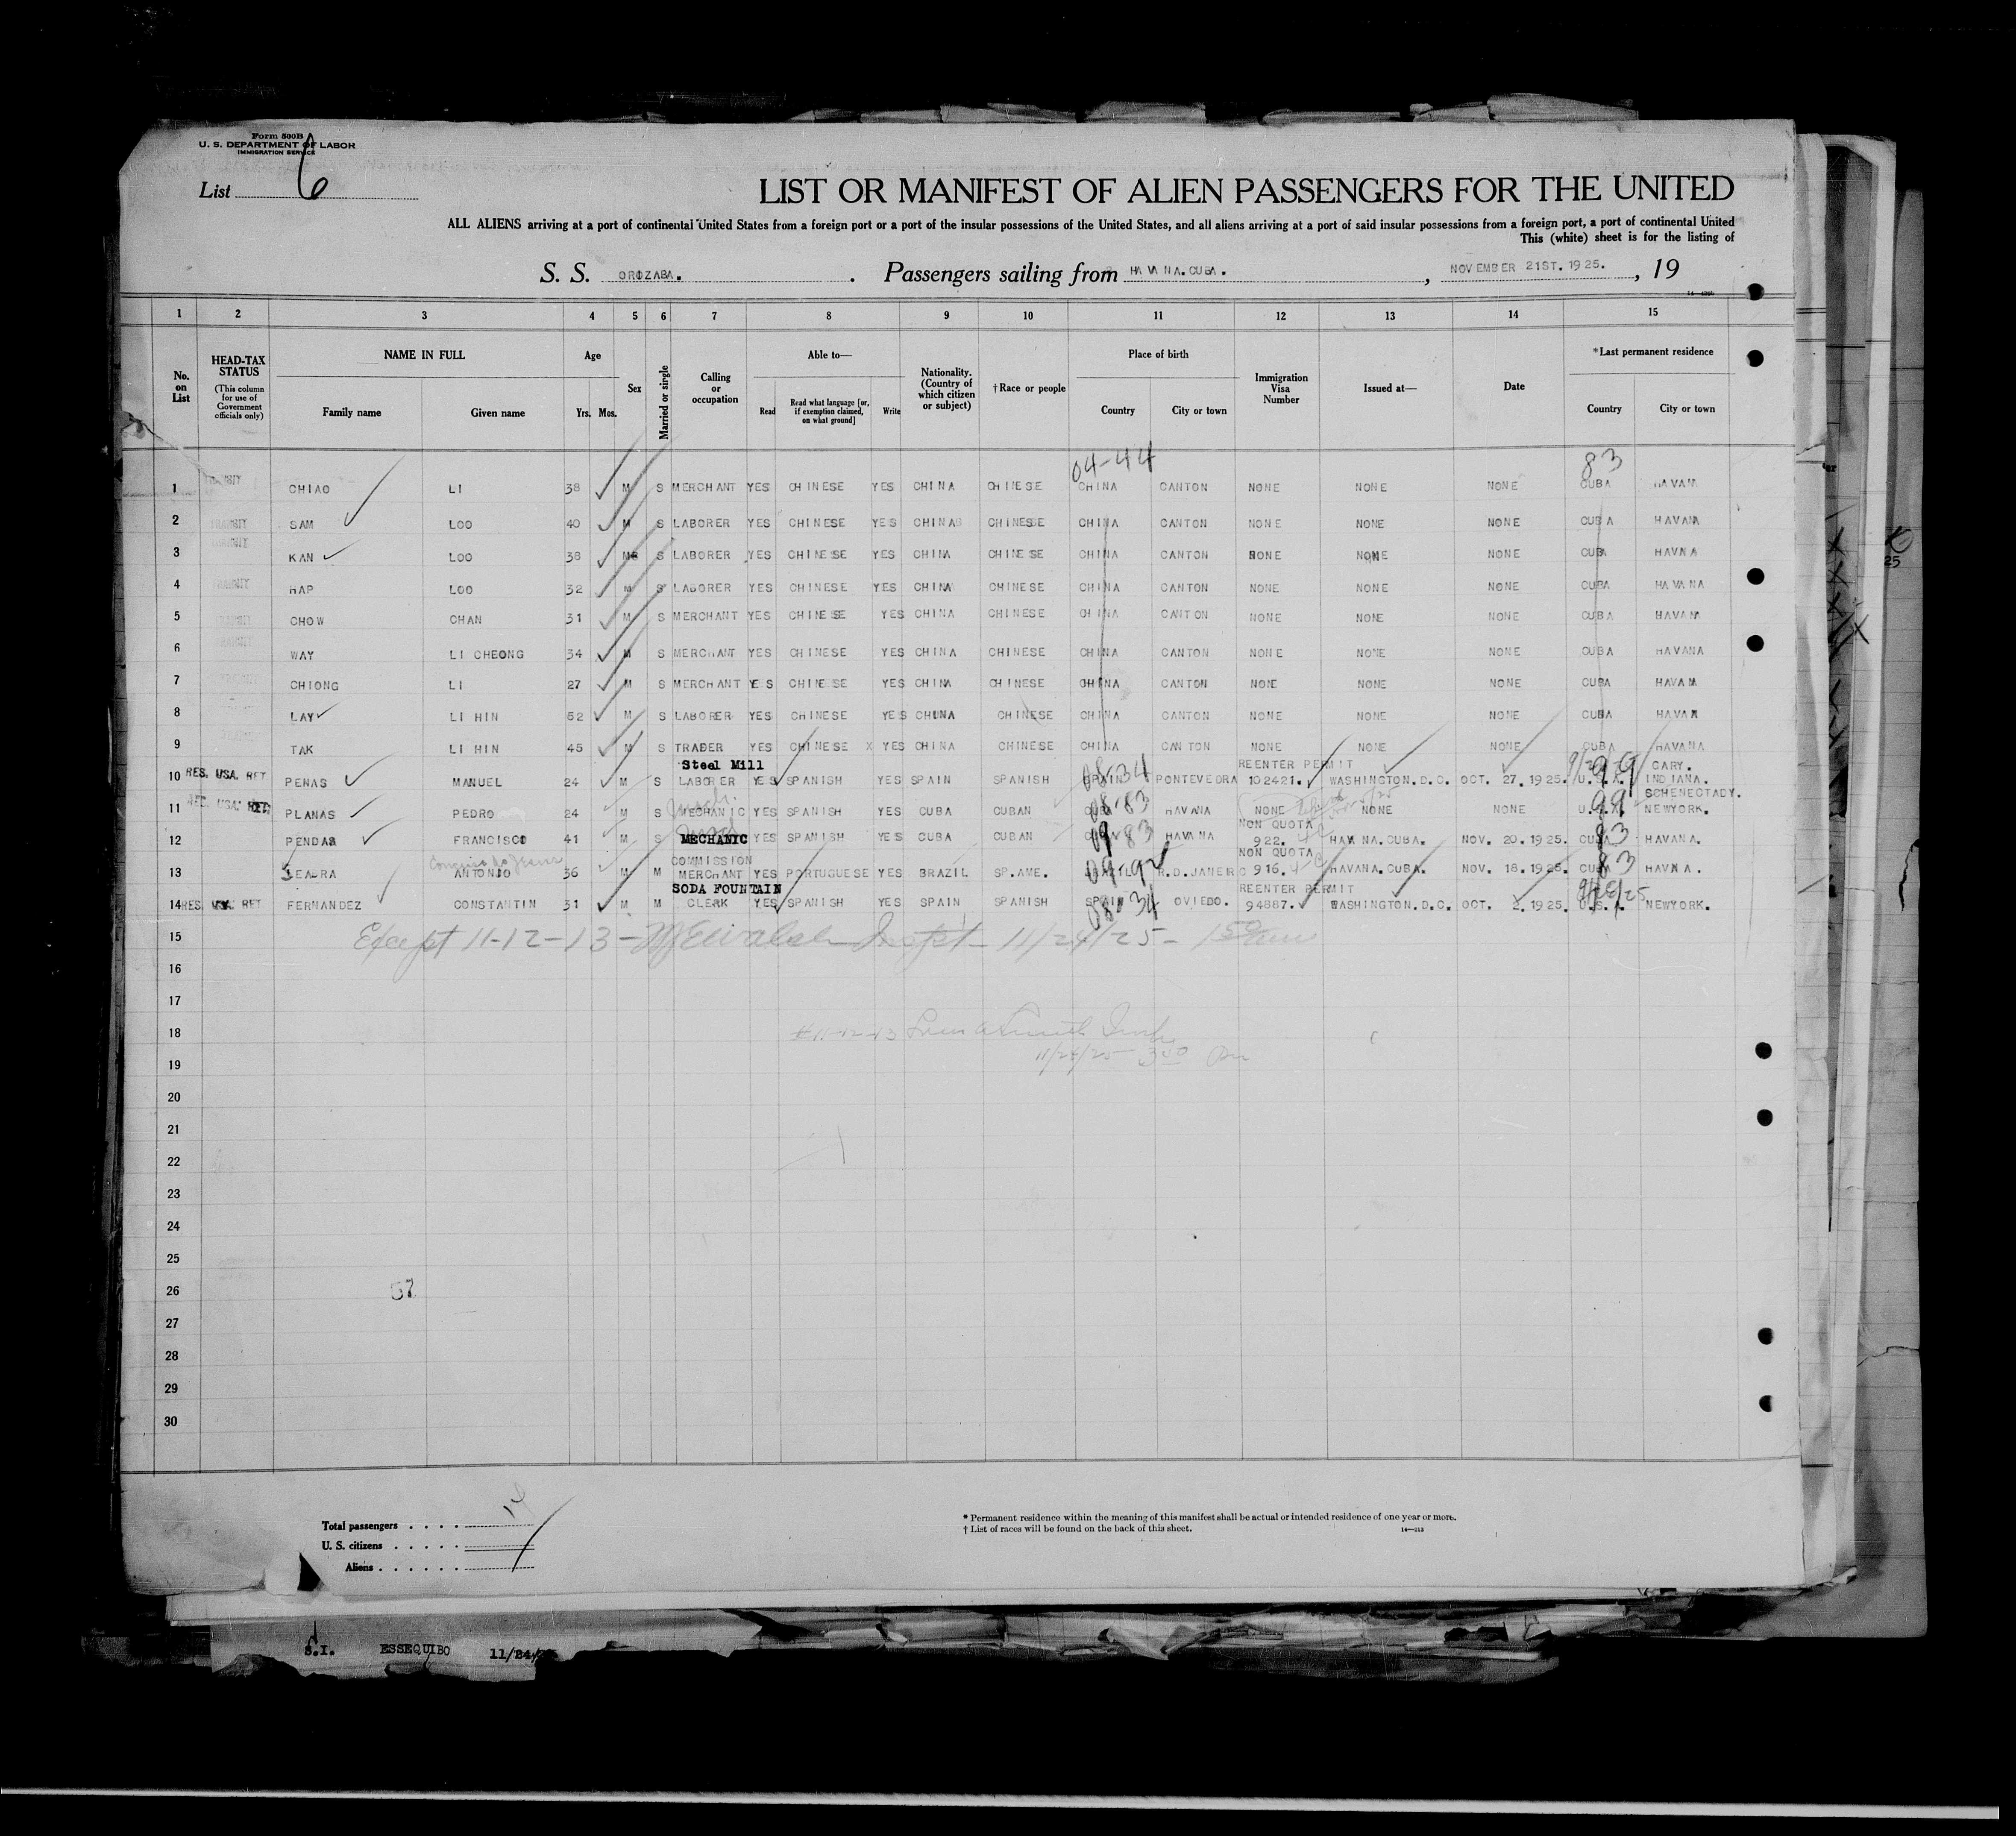 Form 500B
U. S. DEPARTMENT OF LABOR
IMMIGRATION SERVICE
List 6
LIST OR MANIFEST OF ALIEN PASSENGERS FOR THE UNITED
ALL ALIENS arriving at a port of continental United States from a foreign port or a port of the insular possessions of the United States, and all aliens arriving at a port of said insular possessions from a foreign port, a port of continental United
This (white) sheet is for the listing of
S. S. OROZABA. . Passengers sailing from HAVANA.CUBA. , NOVEMBER 21ST.1925. , 19
1 2 3 4 5 6 7 8 9 10 11 12 13 14 15
No. on List HEAD-TAX STATUS (This column for use of Government officials only) NAME IN FULL Family name Given name Age Yrs. Mos. Sex Married or single Calling or occupation Able to— Read Read what language [or, if exemption claimed, on what ground] Write Nationality. (Country of which citizen or subject) †Race or people Place of birth Country City or town Immigration Visa Number Issued at— Date *Last permanent residence Country City or town
04-44 83
1 CHIAO LI 38 M S MERCHANT YES CHINESE YES CHINA CHINESE CHINA CANTON NONE NONE NONE CUBA HAVAN
2 SAM LOO 40 M S LABORER YES CHINESE YES CHINA CHINESE CHINA CANTON NONE NONE NONE CUBA HAVANA
3 KAN LOO 38 M S LABORER YES CHINESE YES CHINA CHINESE CHINA CANTON NONE NONE NONE CUBA HAVNA
4 HAP LOO 32 M S LABORER YES CHINESE YES CHINA CHINESE CHINA CANTON NONE NONE NONE CUBA HAVANA
5 CHOW CHAN 31 M S MERCHANT YES CHINESE YES CHINA CHINESE CHINA CANTON NONE NONE NONE CUBA HAVANA
6 WAY LI CHEONG 34 M S MERCHANT YES CHINESE YES CHINA CHINESE CHINA CANTON NONE NONE NONE CUBA HAVANA
7 CHIONG LI 27 M S MERCHANT YES CHINESE YES CHINA CHINESE CHINA CANTON NONE NONE NONE CUBA HAVANA
8 LAY LI HIN 52 M S LABORER YES CHINESE YES CHUNA CHINESE CHINA CANTON NONE NONE NONE CUBA HAVAN
9 TAK LI HIN 45 M S TRADER YES CHINESE X YES CHINA CHINESE CHINA CANTON NONE NONE NONE CUBA HAVANA
Steel Mill REENTER PERMIT GARY.
10 RES. USA. RET PENAS MANUEL 24 M S LABORER YES SPANISH YES SPAIN SPANISH SPAIN 08-34 PONTEVEDRA 102421. WASHINGTON.D.C. OCT. 27.1925. U.S.A. 99 INDIANA.
SCHENECTADY.
11 RES. USA. RET PLANAS PEDRO 24 M S MECHANIC YES SPANISH YES CUBA CUBAN CUBA 08-83 HAVANA NONE NONE NONE U.S.A. 99 NEWYORK.
NON QUOTA
12 PENDAS FRANCISCO 41 M S MECHANIC YES SPANISH YES CUBA CUBAN CUBA 09-83 HAVANA 922. HAVANA.CUBA. NOV. 20.1925. CUBA 83 HAVANA.
COMMISSION NON QUOTA
13 SEABRA ANTONIO 36 M M MERCHANT YES PORTUGUESE YES BRAZIL SP.AME. BRAZIL 09-92 R.D.JANEIRO 916. HAVANA.CUBA. NOV. 18.1925. CUBA 83 HAVNA.
SODA FOUNTAIN REENTER PERMIT
14 RES. USA. RET FERNANDEZ CONSTANTIN 31 M M CLERK YES SPANISH YES SPAIN SPANISH SPAIN 08-34 OVIEDO. 94887. WASHINGTON.D.C. OCT. 2.1925. U.S.A. NEWYORK.
15 Except 11-12-13- Inspt- 11/24/25-
16
17
18 #11-12-13
19 11/24/25
20
21
22
23
24
25
26 57
27
28
29
30
Total passengers 14
U. S. citizens
Aliens
* Permanent residence within the meaning of this manifest shall be actual or intended residence of one year or more.
† List of races will be found on the back of this sheet. 14—213
S.I. ESSEQUIBO 11/24/